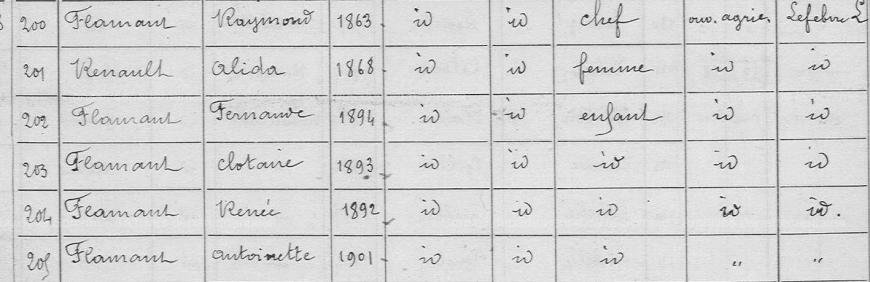 200 Flamant Raymond 1863 id id chef ouv. agric. Lefebvre L
201 Renault Alida 1868 id id femme id id
202 Flamant Fernande 1894 id id enfant id id
203 Flamant Clotaire 1893 id id id id id
204 Flamant Renée 1892 id id id id id.
205 Flamant Antoinette 1901 id id id " "